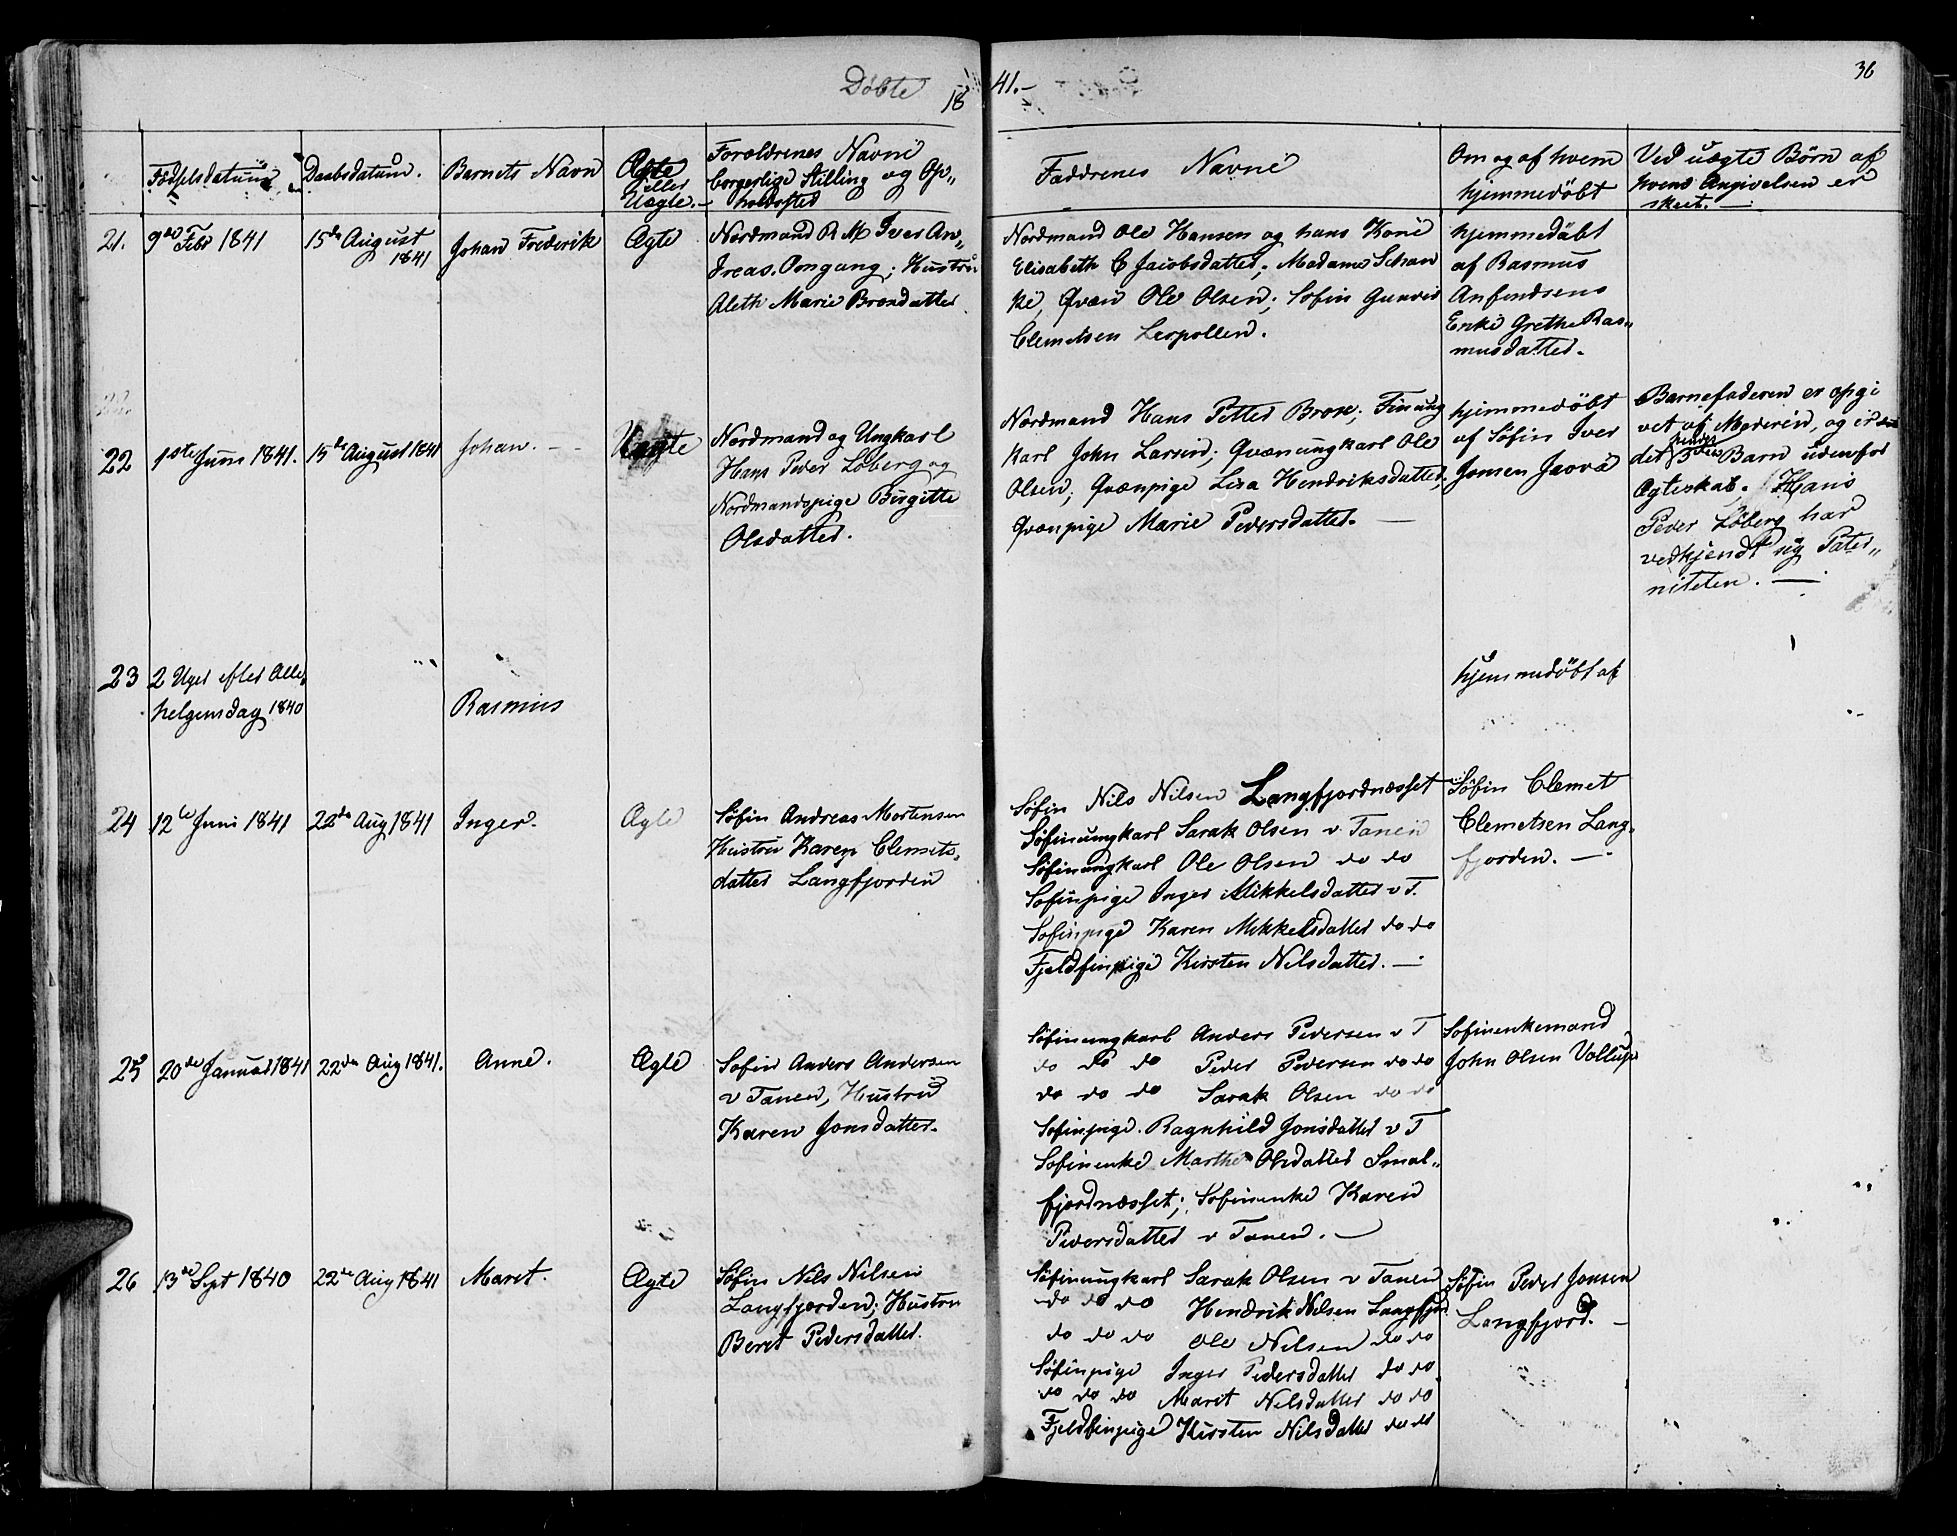 Döbte 1841.-
36
Födselsdatum
Daabsdatum.
Barnets Navn
Ægte
eller
Uægte.-
Forældrenes Navne
borgerlige Stilling og Op„
holdssted
Faddrenes Navne
Om og af hvem
hjemmedöbt
Ved uægte Börn af
hvem Angivelsen er
skeet. —
21.
9de Febr 1841
15de August
1841
Johan Frederik
Ægte
Nordmand R M Iver An„
dreas Ongang; Hustru
Aleth Marie Broxdatter
Nordmand Ole Hansen og hans Kone
Elisabeth C Jacobsdatter; Madame Schan
ke, Qvæn Ole Olsen; Söfin Gunner
Clemetsen Lerpollen.
hjemmedöbt
af Rasmus
Anfindsens
Enke Grethe Ras„
musdatter.
22
1ste Juni 1841.
15de August 1841
Johan. —
Uægte
Nordmand og Ungkarl
Hans Peder Löberg og
Nordmandspige Birgitte
Olsdatter.
Nordmand Hans Petter Brox; Finung
karl John Larsen; Qvænungkarl Ole
Olsen; Qvænpige Lisa Hendriksdatter,
Qvænpige Marie Pedersdatter. —
hjemmedöbt
af Söfin Iver
Jonsen
Barnefaderen er opgi
vet af Moderen, og er
det hendes 3die Barn udenfor
Ægteskab. Hans
Peder Löberg har
vedkjendt sig Pater„
niteten. —
23
2 Uger efter Alle„
helgensdag 1840
Rasmus
hjemmedöbt af
24
12te Juni 1841
22de Aug 1841
Inger.
Ægte
Söfin Andreas Mortensen
Hustru Karen Clemets„
datter Langfjorden
Söfin Nils Nilsen Langfjordnæsset
Söfinungkarl Sarak Olsen v Tanen
Söfinungkarl Ole Olsen do do
Söfinpige Inger Mikkelsdatter v T.
Sofinpige Karen Mikkelsdatter do do
Fjeldfinpige Kirsten Nilsdatter. —
Söfin Clemet
Clemetsen Lang„
fjorden. —
25
20de Januar 1841
22de Aug 1841.
Anne.
Ægte
Sofin Anders Andersen
v Tanen, Hustru
Karen Jonsdatter.
Söfinungkarl Anders Pedersen v T
do do do Peder Pedersen do do
do do do Sarak Olsen do do
Sofinpige Ragnhild Jonsdatter v T
Sofinenke Marthe Olsdatter Smal„
fjordnæsset; Sofinenke Karen
Pedersdatter v Tanen. —
Sofinenkemand
John Olsen Vollup
26
13de Sept 1840
22de Aug 1841
Maret.
Ægte
Söfin Nils Nilsen
Langfjorden; Hustru
Beret Pedersdatter.
Söfinungkarl Sarak Olsen v Tanen
do do do Hendrik Nilsen Langfjord
do do do Ole Nilsen do do
Söfinpige Inger Pedersdatter do do
do do do Marit Nilsdatter do do
Fjeldfinpige Kirsten Nilsdatter do do
Söfin Peder Jonsen
Langfjord. —